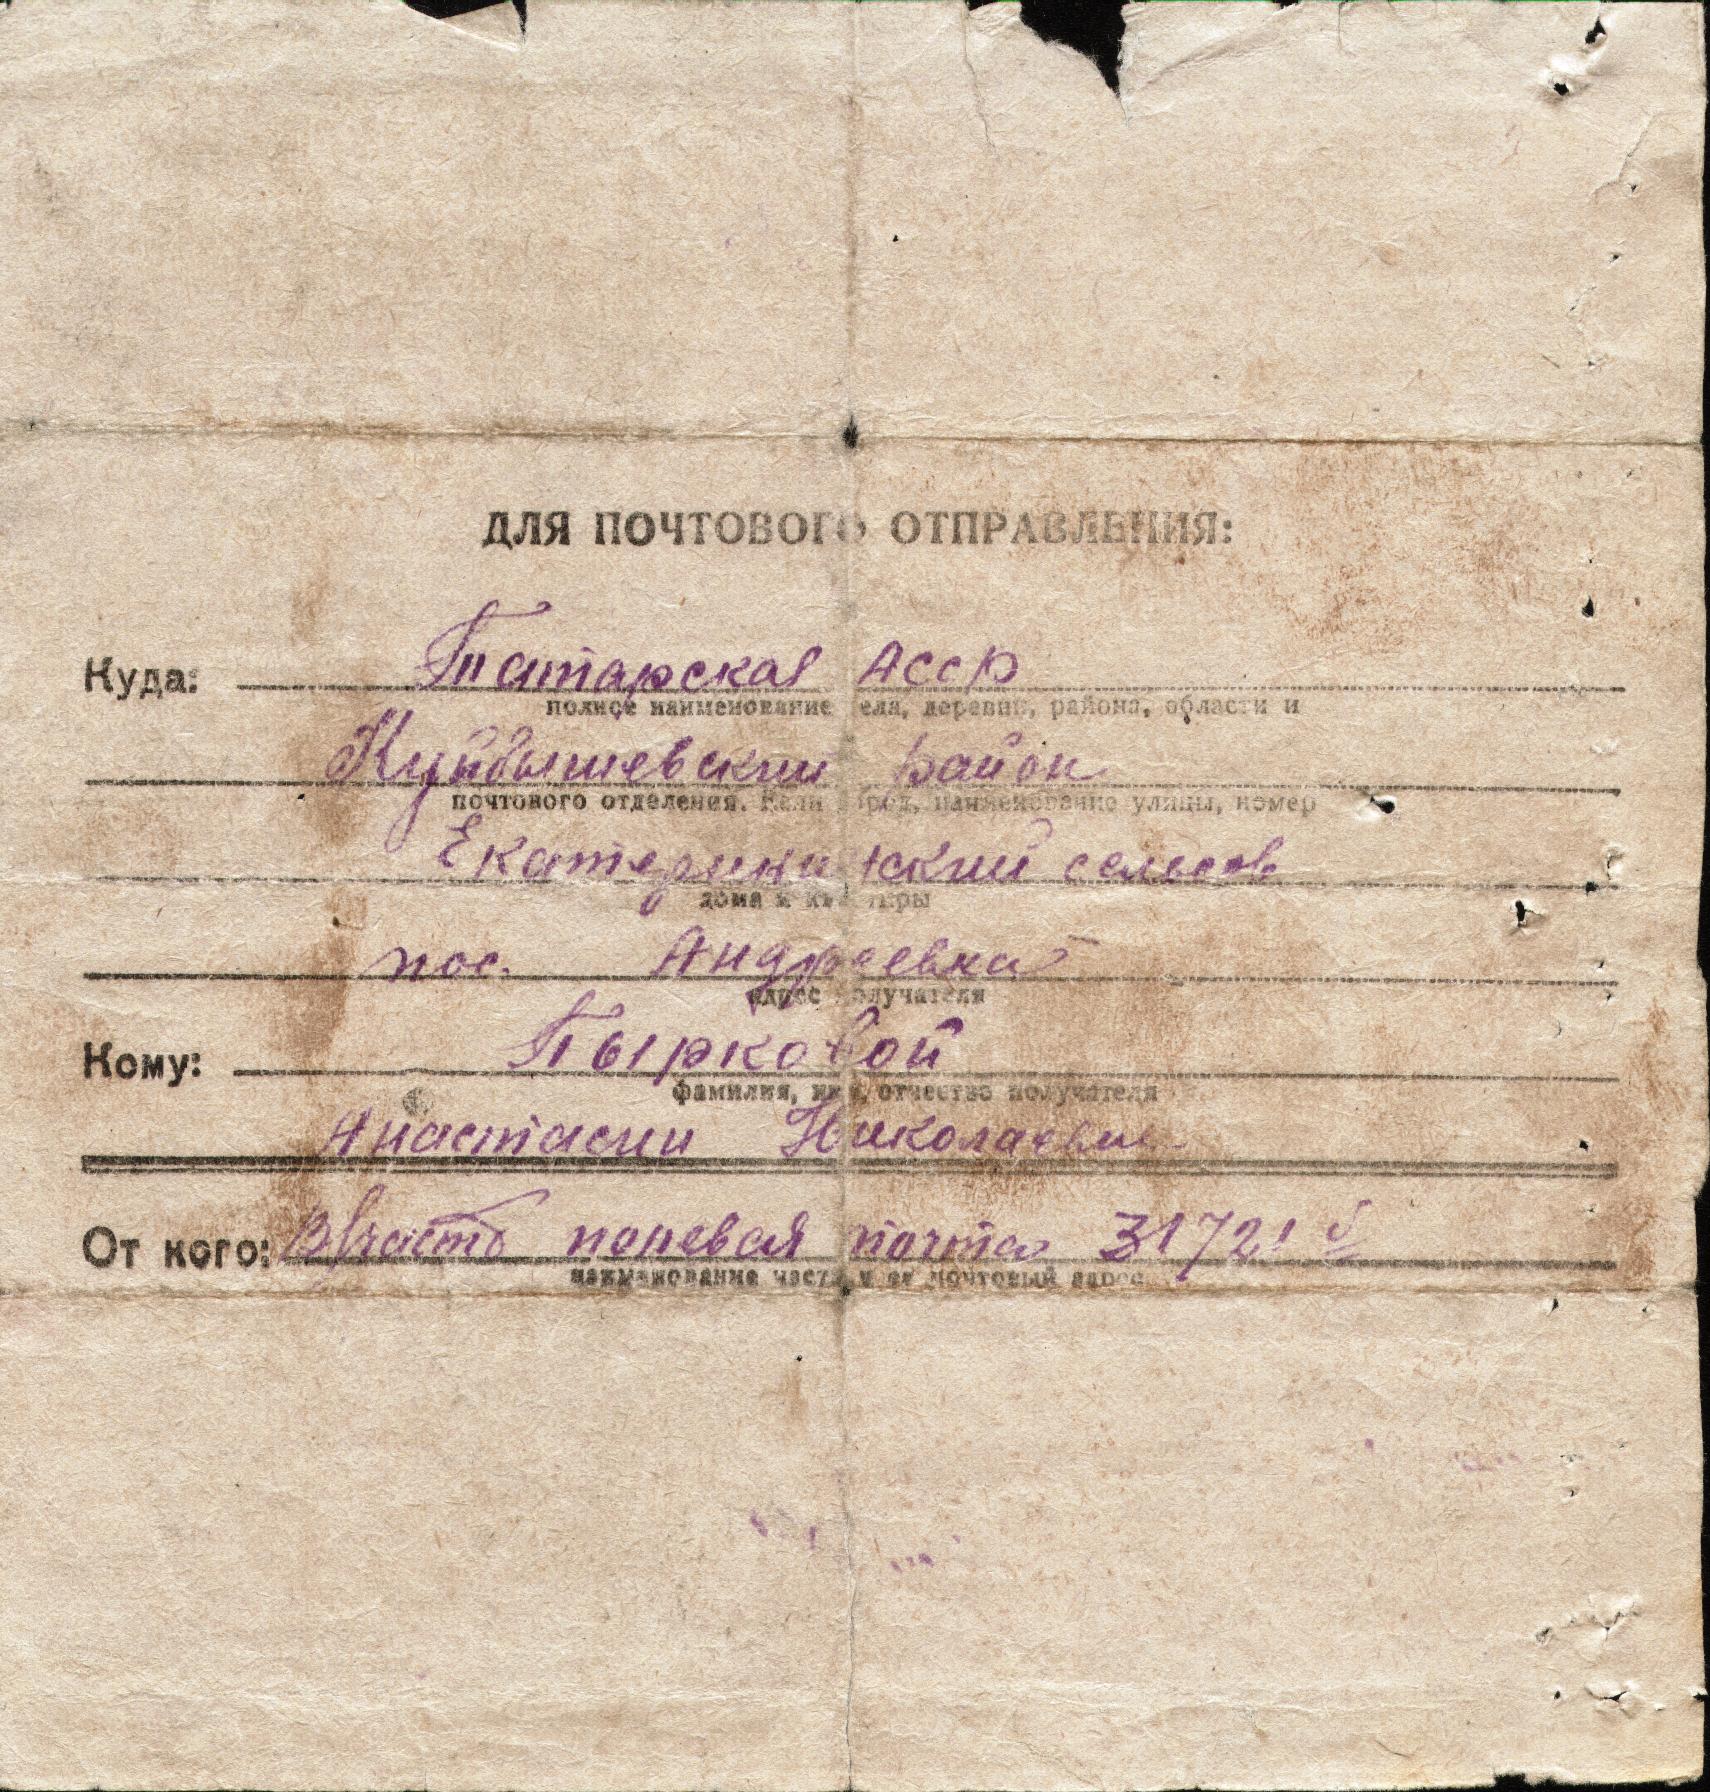 ДЛЯ ПОЧТОВОГО ОТПРАВЛЕНИЯ:
Куда: Татарская АССР
полное наименование села, деревни, района, области и
Куйбышевский район
почтового отделения. Если город, наименование улицы, номер
Екатерининский сельсов
дома и квартиры
пос. Андреевка
адрес получателя
Кому: Пырковой
фамилия, имя, отчество получателя
Анастасии Николаевне
От кого: В/часть полевая почта 31721
наименование части и ее почтовый адрес